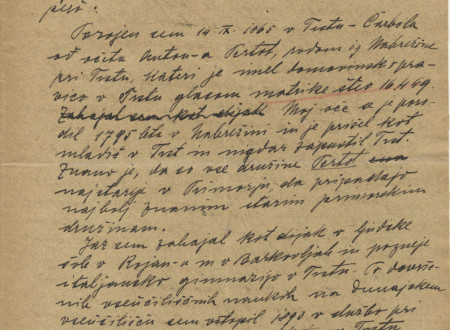 pišo:
Porojen sem 14. IX. 1865 v Trstu – Čarbola
od očeta Anton-a Pertot, rodom iz Nabrežine
pri Trstu, kateri je imel domovinsko pra-
vico v Trstu glasom matrike štev. 16.449.
Zahajal sem kot dijak Moj oče se je poro-
dil 1795 leta v Nabrežini in je prišel kot
mladič v Trst in nigdar zapustil Trst.
Znano je, da so vse družine Pertot
najstarije v Primorju, da pripadajo
najbolj znanim starim primorskim
družinam.
Jaz sem zahajal kot dijak v ljudske
šole v Rojan-u in v Barkovljah in pozneje
italjansko gimnazijo v Trstu. Po dovrše-
nih vseučiliščnih naukih na dunajskem
vseučilišču sem vstopil 1890 v službo pri
Trstu